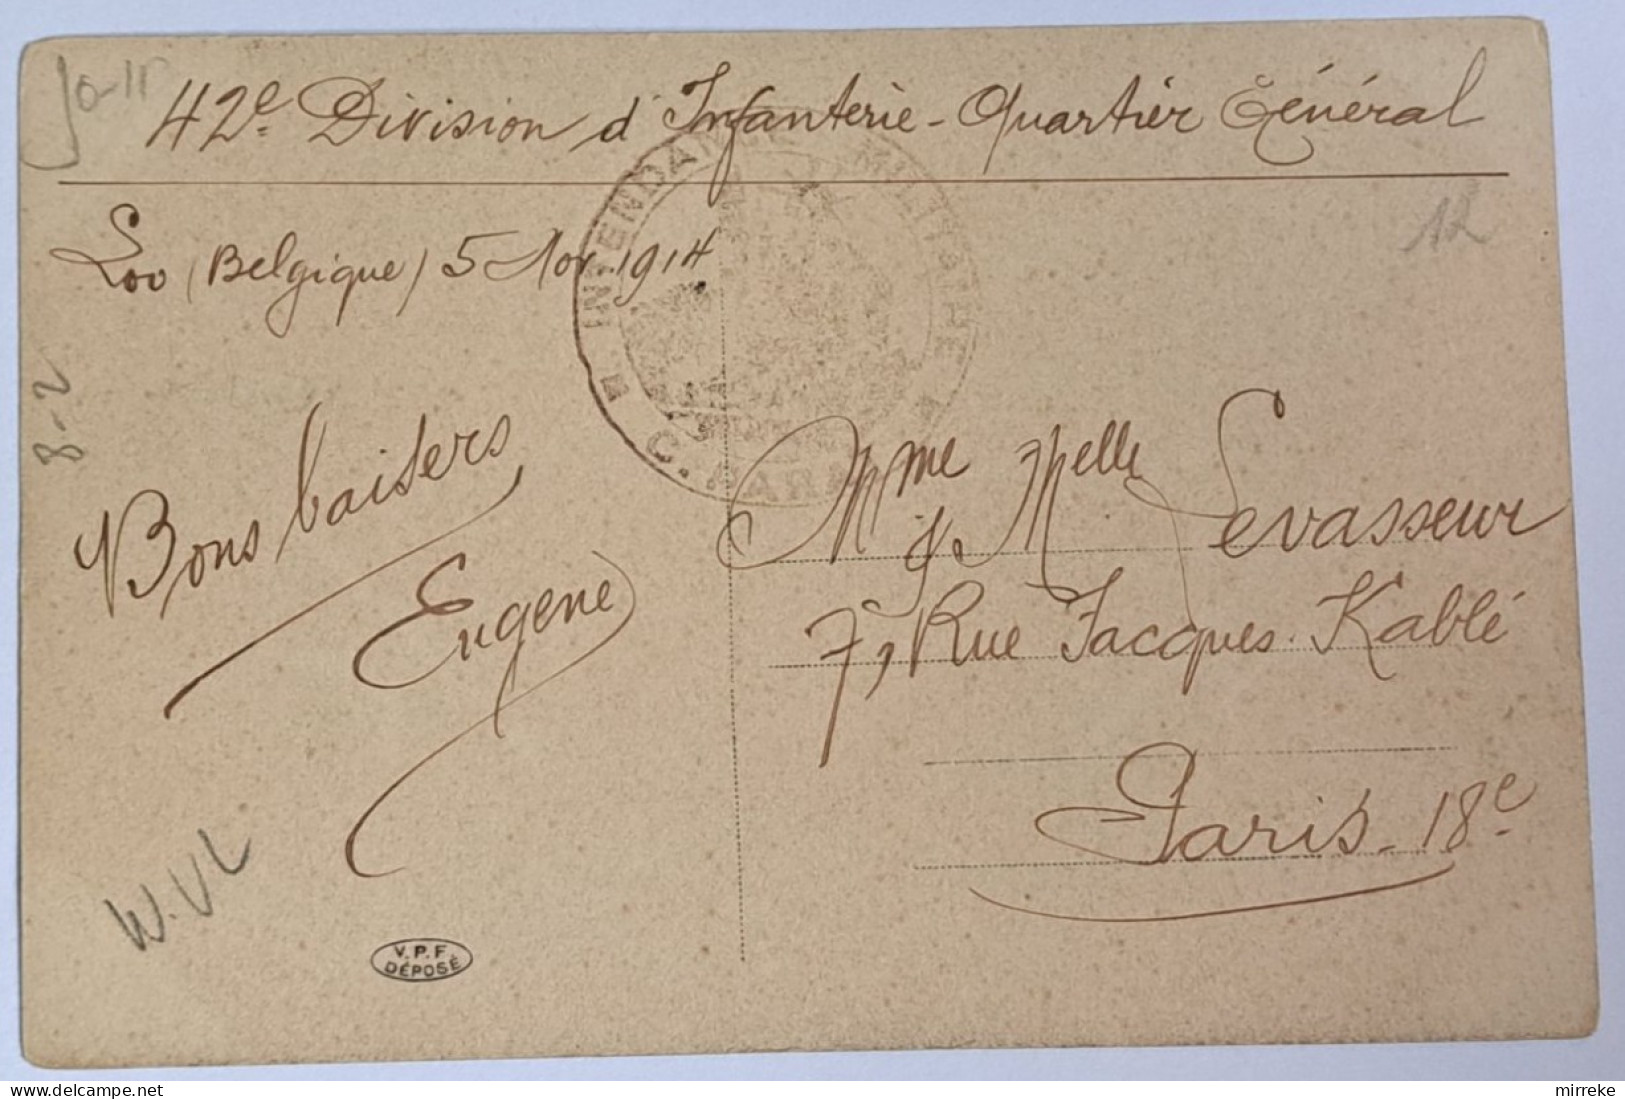 42e Division d'Infanterie - Quartier Général
12
Loo (Belgique) 5 Nov. 1914
INTENDANCE MILITAIRE
8-2
Bons baisers
Eugène
Mme & Melle Levasseur
7, Rue Jacques Kablé
Paris - 18e
W.VL
V.P.F.
DÉPOSÉ
mirreke